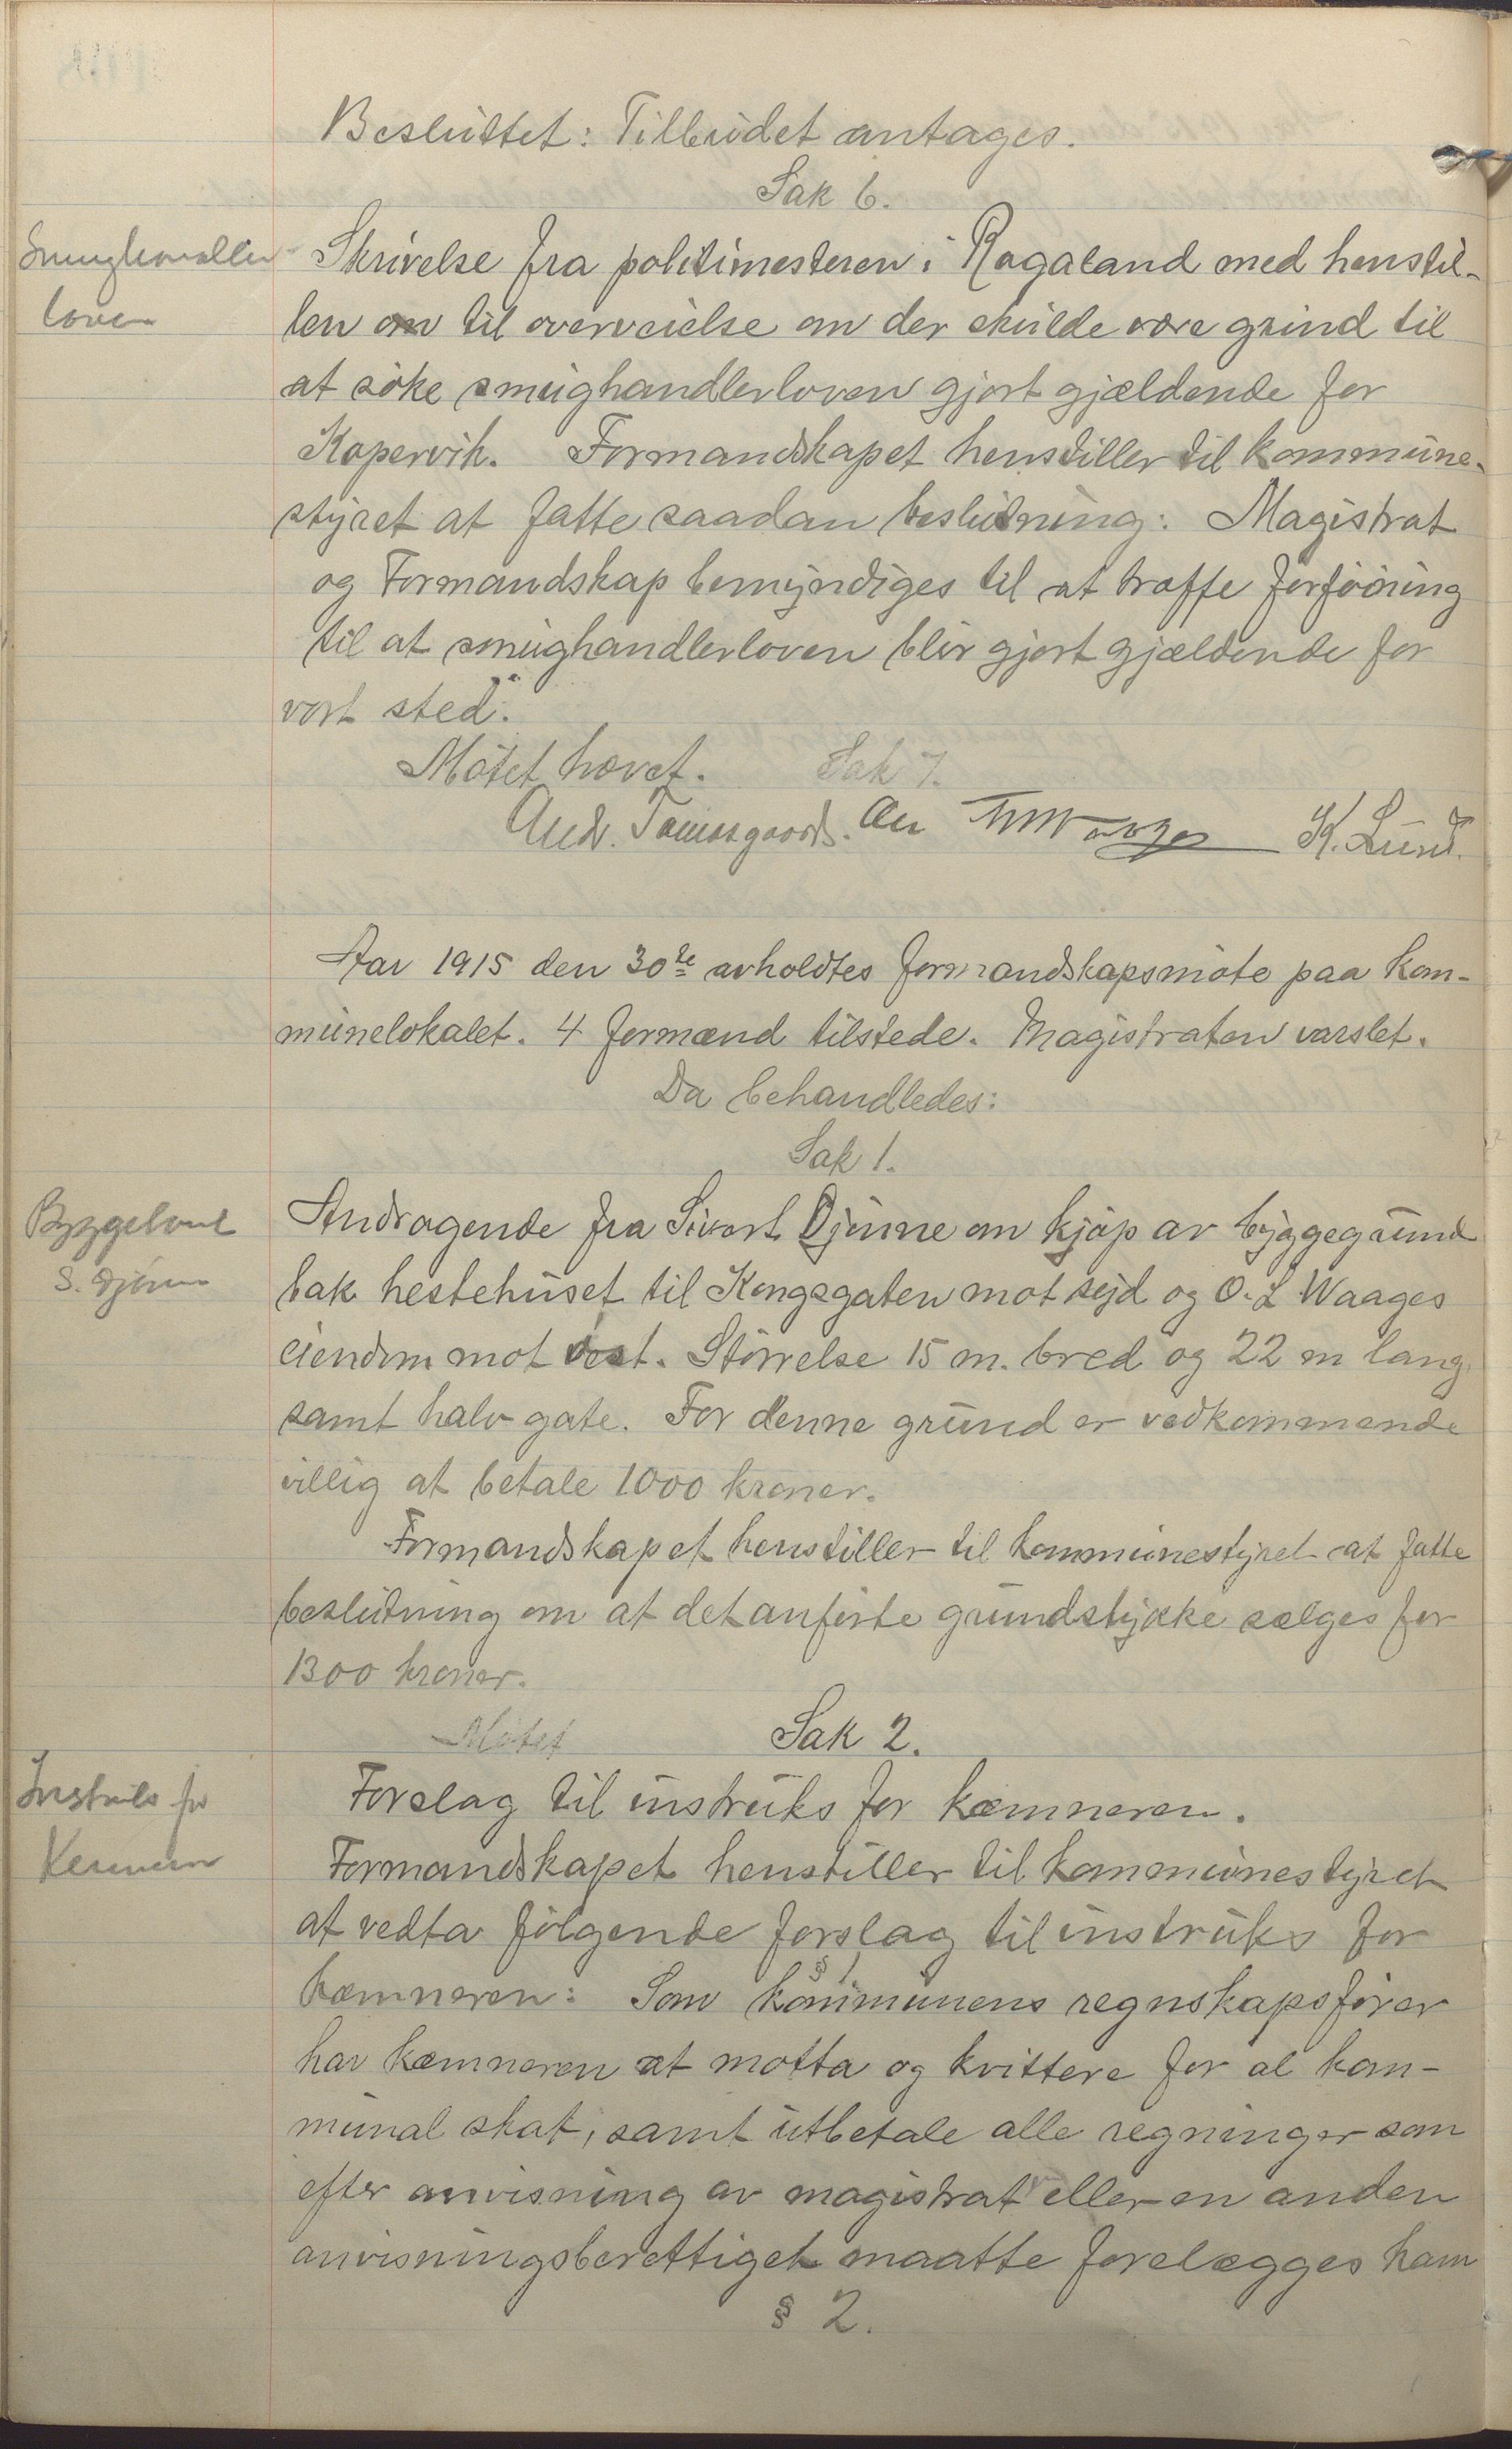 Besluttet: Tilbudet antages.
Sak 6.
Smughandler
loven
Skrivelse fra politimesteren i Rogaland med henstil-
len om til overveielse om der skulde være grund til
at søke smughandlerloven gjort gjældende for
Kopervik. Formandskapet henstiller til kommune-
styret at fatte saadan beslutning: Magistrat
og Formandskap bemyndiges til at træffe forføining
til at smughandlerloven blir gjort gjældende for
vort sted".
Møtet hævet. Sak 7.
Andr. K. Lund.
Aar 1915 den 30te avholdtes formandskapsmøte paa kom-
munelokalet. 4 formænd tilstede. Magistraten varslet.
Da behandledes:
Sak 1.
Byggetomt
S. Djünne
Andragende fra Sivert Djünne om kjøp av byggegrund
bak hestehuset til Kongsgaten mot syd og O. L Waages
eiendom mot vest. Størrelse 15 m. bred og 22 m lang
samt halv gate. For denne grund er vedkommende
villig at betale 1000 kroner.
Formandskapet henstiller til kommunestyret at fatte
beslutning om at det anførte grundstykke sælges for
1300 kroner.
Møtet Sak 2.
Instruks for
Kemneren
Forslag til instruks for kæmneren.
Formandskapet henstiller til kommunestyret
at vedta følgende forslag til instruks for
§ 1
kæmneren: Som kommunens regnskapsfører
har kæmneren at motta og kvittere for al kom-
munal skat, samt utbetale alle regninger som
efter anvisning av magistrat eller en anden
anvisningsberettiget maatte forelægges ham
§ 2.